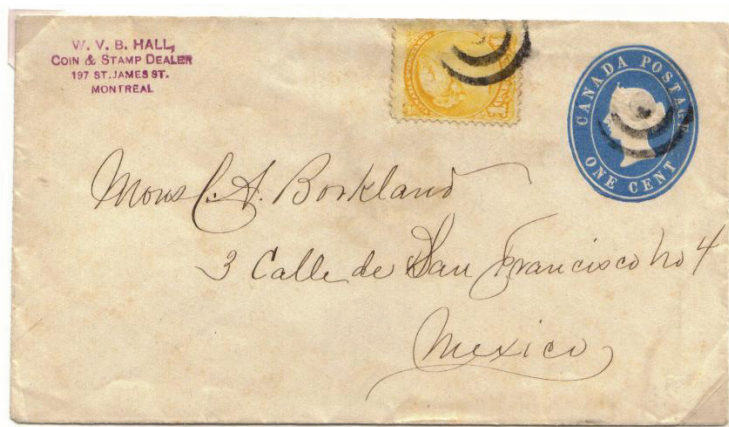 W. V. B. HALL,
COIN & STAMP DEALER
197 ST. JAMES ST.
MONTREAL
1
CANADA POSTAGE
ONE CENT
Mons C. A. Borkland
3 Calle de San Francisco no 4
Mexico